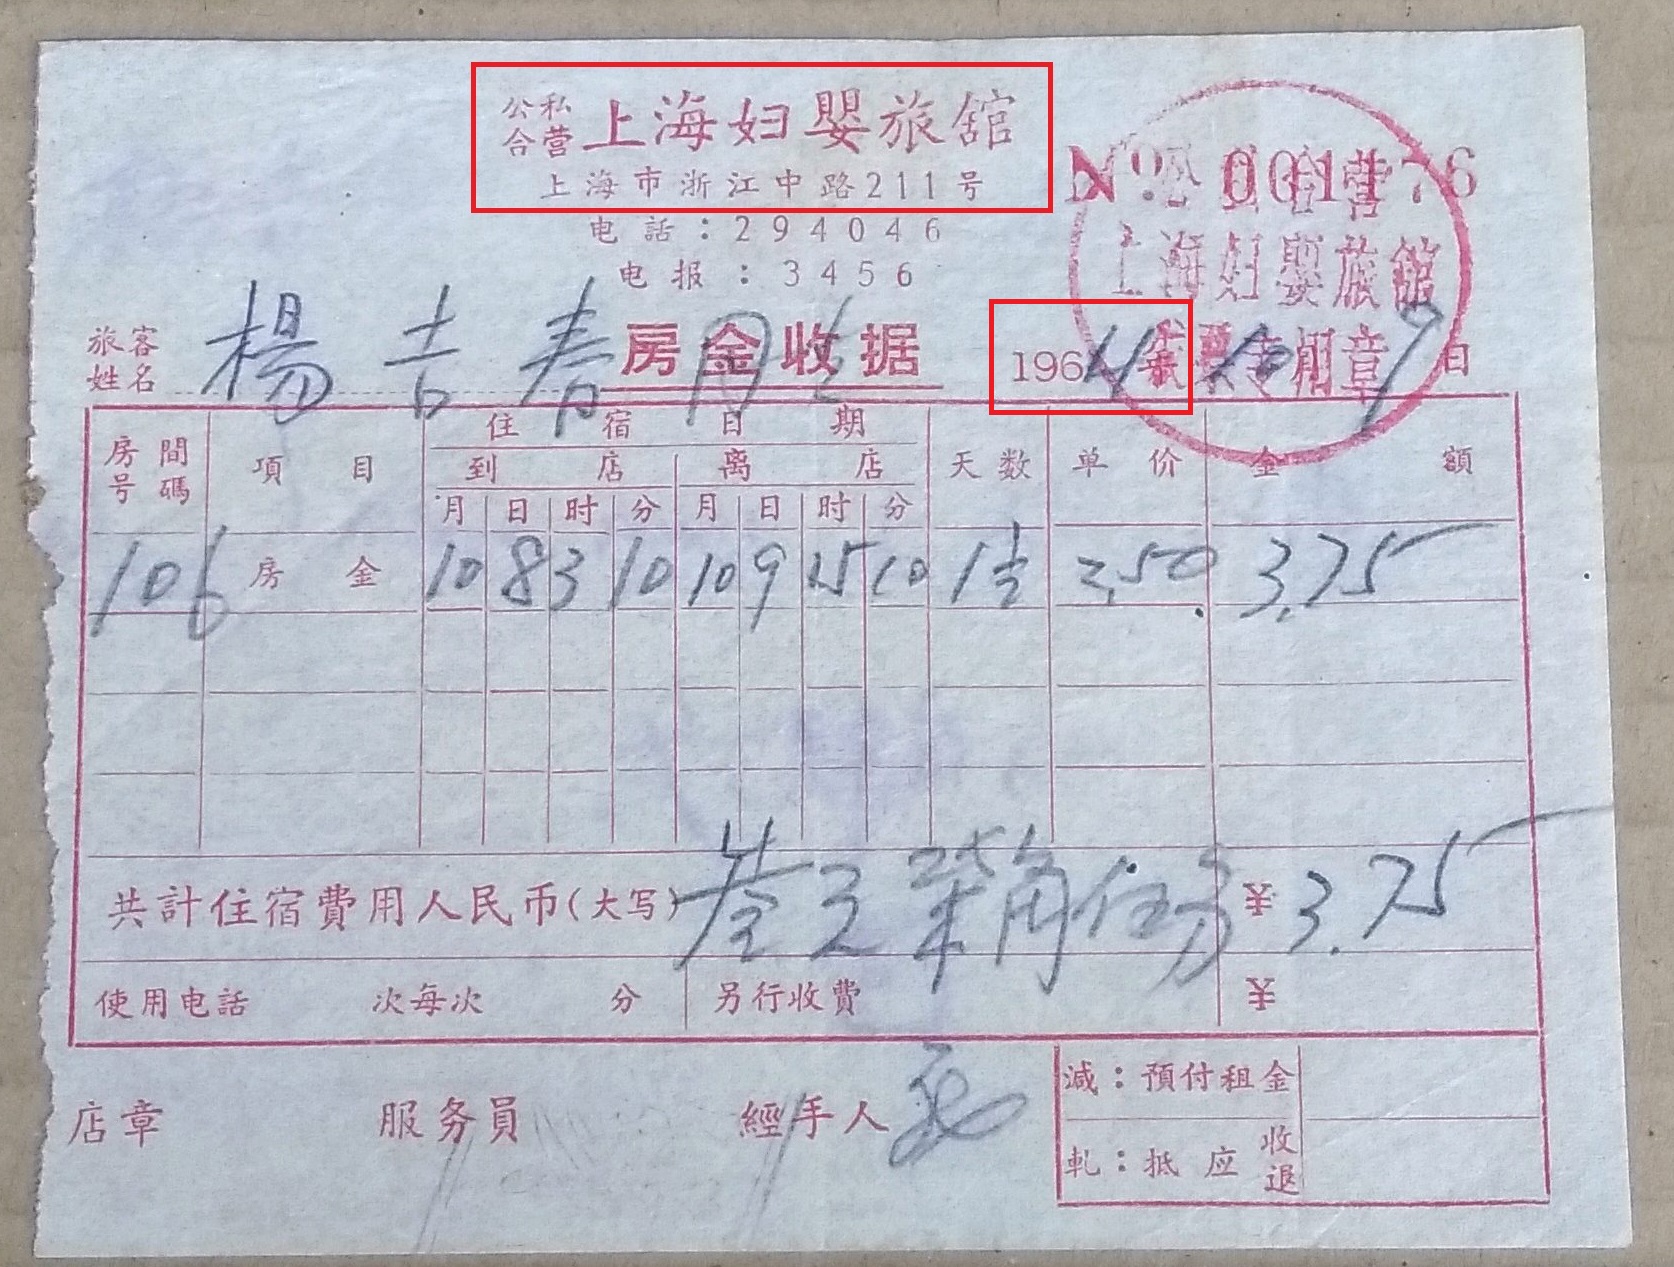 公私合营 上海妇嬰旅舘
上海市浙江中路211号
电話：294046
电报：3456
№ 001176
上海妇嬰旅舘
发票专用章
旅客姓名 楊吉春 房金收据 1964年10月9日
房間号碼 項目 住宿日期 天数 单价 金額
到店 离店
月 日 时 分 月 日 时 分
106 房金 10 8 3 10 10 9 15 10 1½ 2.50 3.75
共計住宿費用人民币(大写) 叁元柒角伍分 ¥3.75
使用电話 次每次 分 另行收費 ¥
店章 服务員 經手人
减：預付租金
軋：抵应收退